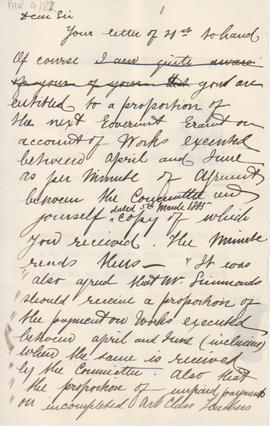 DIR 9/22
Dear Sir
Your letter of 21st to hand
Of course I am quite aware
you are
entitled to a proportion of
the next Goverment Grant on
account of Works executed
between April and June
as per Minute of Agreement
between the Committee and
dated 5th March 1885
yourself copy of which
you received The Minute
reads thus — "It was
"also agreed that Mr Simmonds
"should receive a proportion of
"the payment on Works executed
between april and June (inclusive)
"when the same is received
"by the Committee. Also that
"the proportion of unpaid payments
"on incompleted Art Class